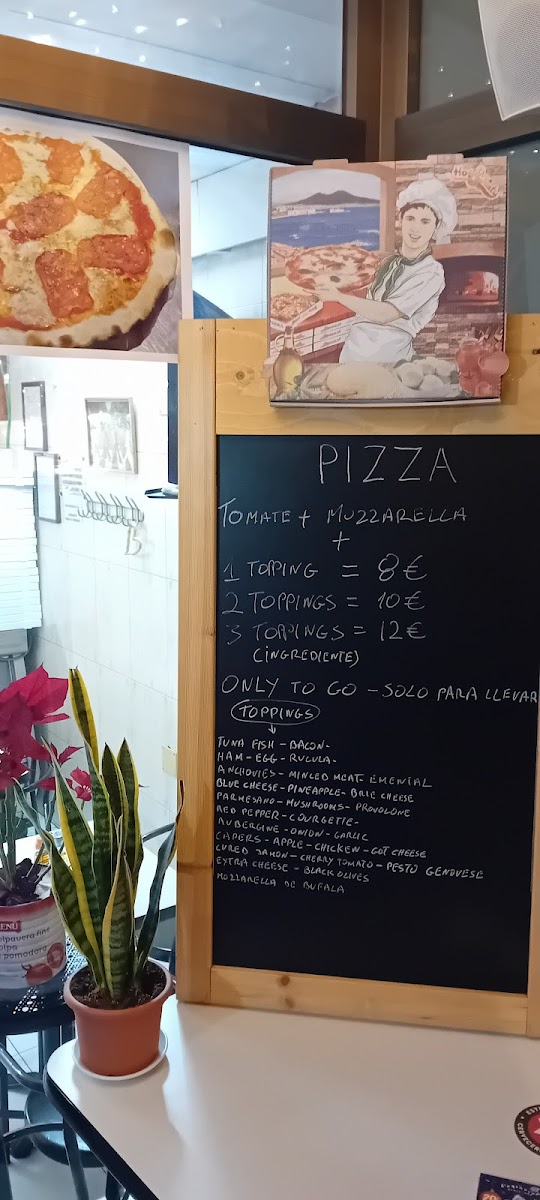 Hot
PIZZA
TOMATE + MUZZARELLA
+
1 TOPPING = 8€
2 TOPPINGS = 10€
3 TOPPINGS = 12€
(INGREDIENTE)
ONLY TO GO - SOLO PARA LLEVAR
TOPPINGS
TUNA FISH - BACON-
HAM - EGG - RUCULA-
ANCHOVIES - MINCED MEAT EMENTAL
BLUE CHEESE - PINEAPPLE - BRIE CHEESE
PARMESANO - MUSHROOMS - PROVOLONE
RED PEPPER - COURGETTE -
AUBERGINE - ONION - GARLIC
CAPERS - APPLE - CHICKEN - GOT CHEESE
CURED JAMON - CHERRY TOMATO - PESTO GENOVESE
EXTRA CHEESE - BLACK OLIVES
MOZZARELLA DE BUFALA
MENÙ
polpa
pomodoro